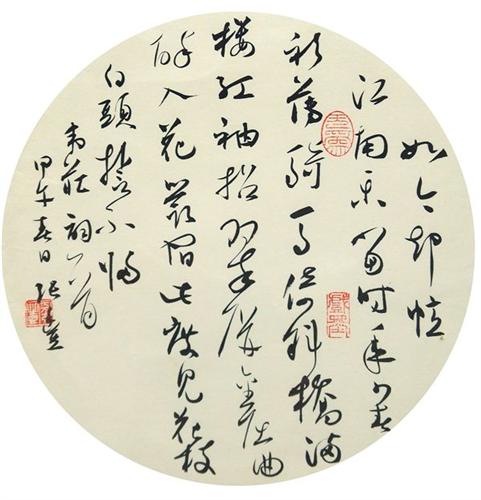 如今却憶
江南樂當時年少春
衫薄騎馬倚斜橋滿
樓紅袖招翠屏金屈曲
醉入花叢宿此度見花枝
白頭誓不歸
韋莊詞一首
甲午春日張